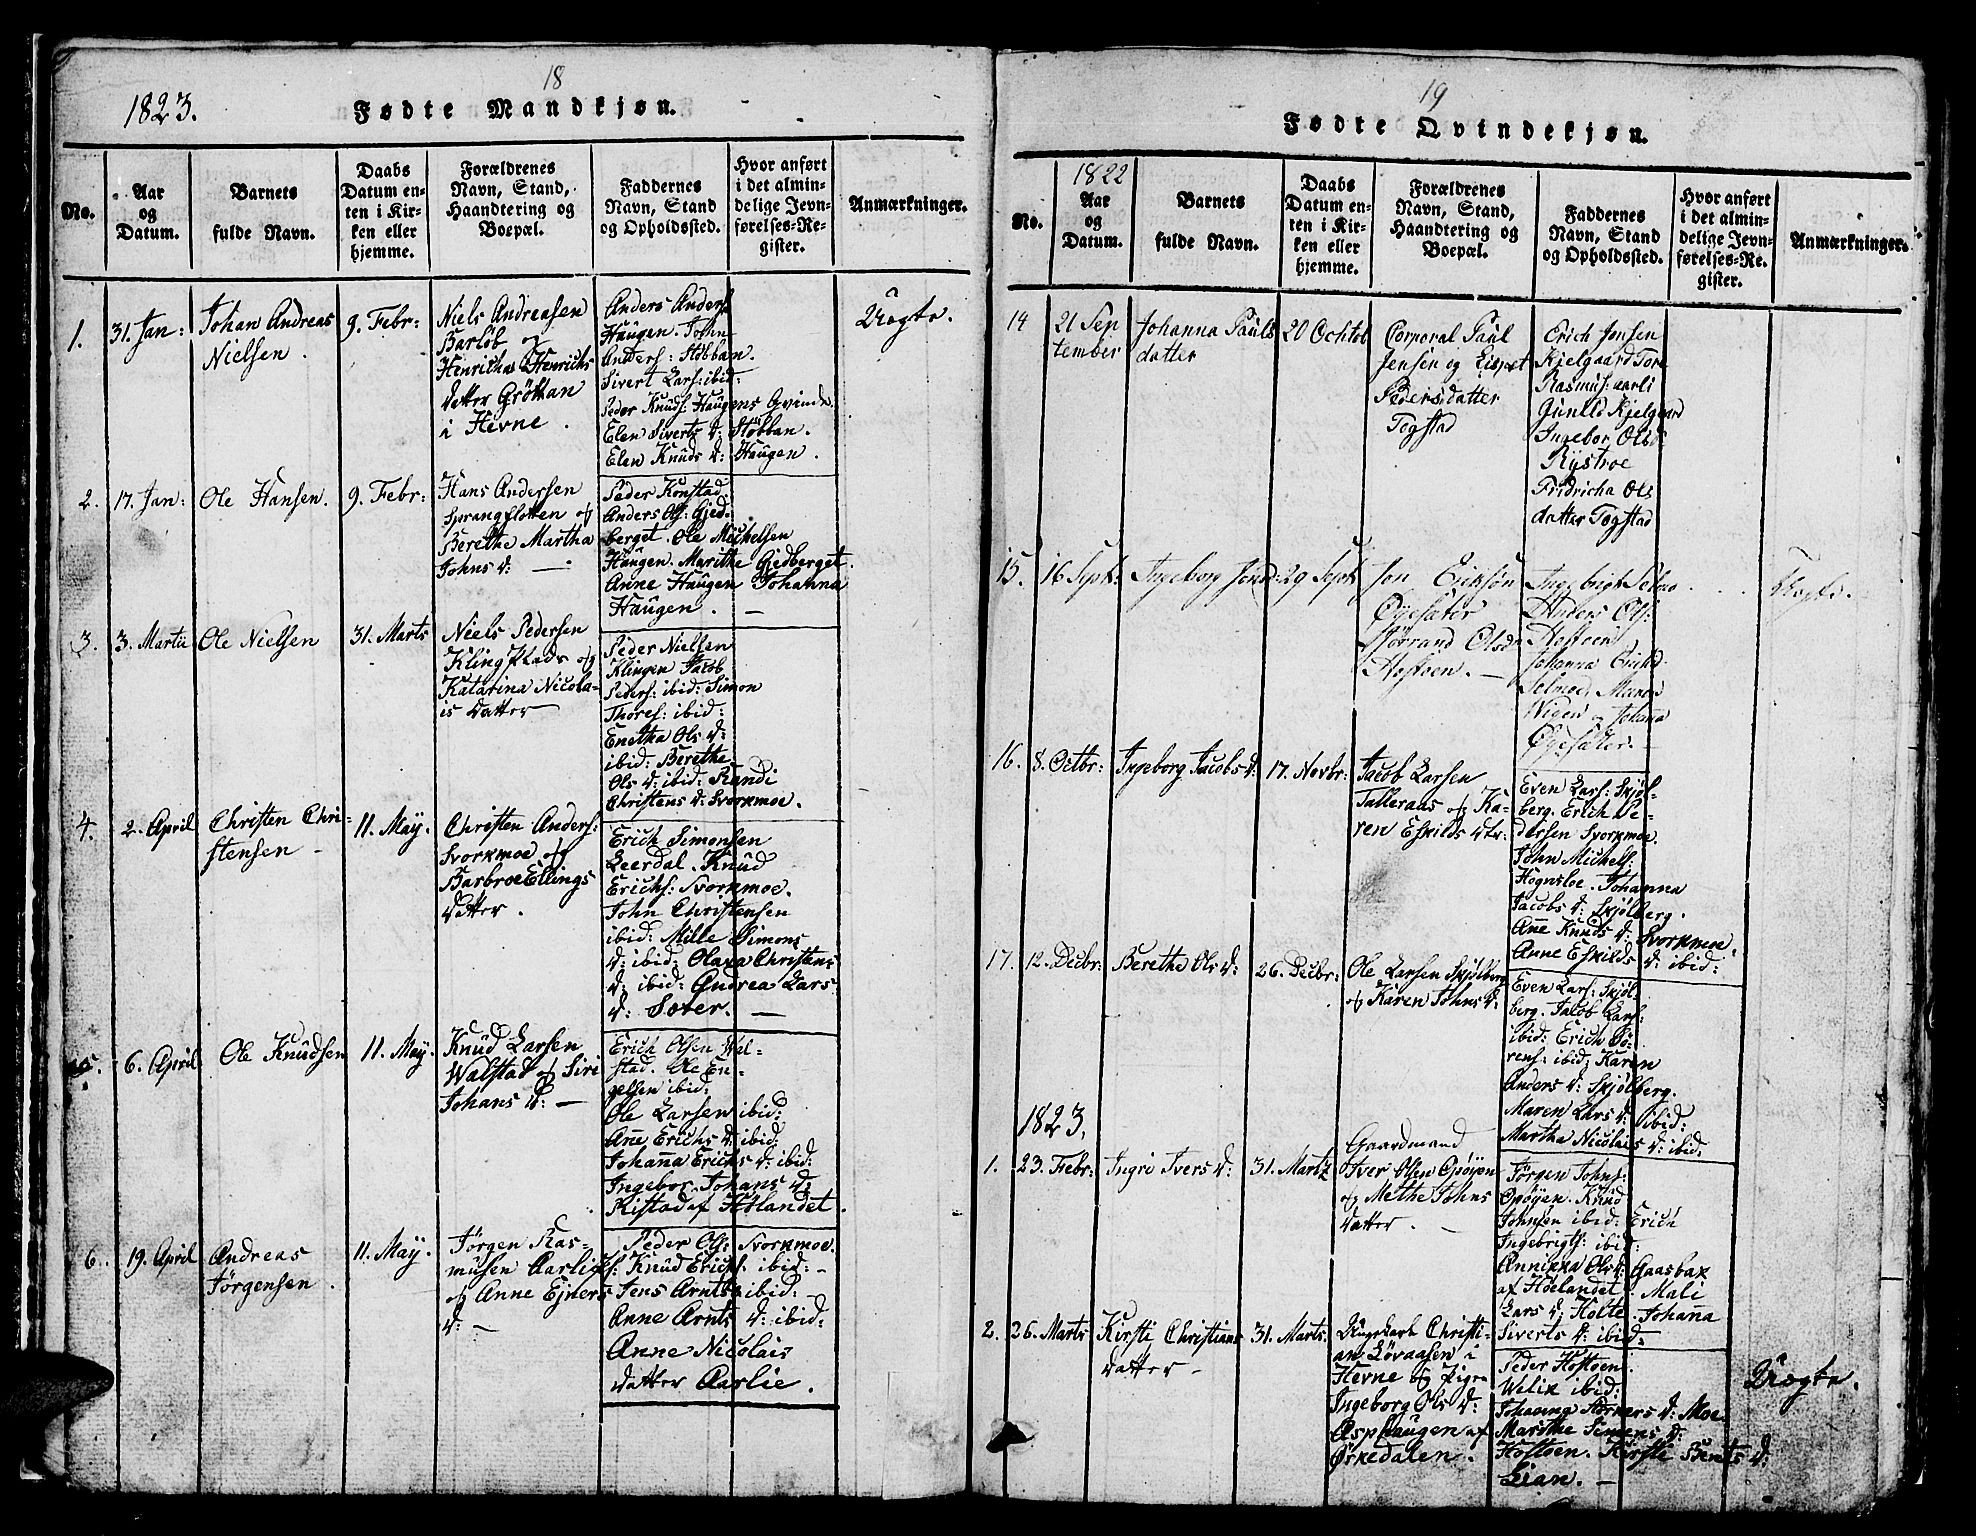 18
1823.
Fødte Mandkjøn.
No.
Aar
og
Datum.
Barnets
fulde Navn.
Daabs
Datum en-
ten i Kir-
ken eller
hjemme.
Forældrenes
Navn, Stand,
Haandtering og
Boepæl.
Faddernes
Navn, Stand
og Opholdssted.
Hvor anført
i det almin-
delige Jevn-
førelses-Re-
gister.
Anmærkninger.
1.
31. Jan:
Johan Andreas
Nielsen.
9. Febr:
Niels Andreasen
Barløb og
Henricha Henrichs
datter Gröttan
i Hevne.
Anders Anders:
Haugen. John
Anders: Höbban.
Sivert Lars: ibid:
Peder Knuds: Haugens Qvinde.
Elen Siverts d: Höbban.
Elen Knuds d: Haugen.
Uægte.
2.
17. Jan:
Ole Hansen.
9. Febr:
Hans Andersen
Sprangflotten og
Berethe Martha
Johns d: —
Peder Konstad.
Anders Ols: Gjed-
berget. Ole Michelsen
Haugen. Marithe Gjedberget.
Anne Haugen Johanna
Haugen. —
3.
3. Martii
Ole Nielsen
31. Marts
Niels Pedersen
Kling Plads og
Katarina Nicola-
is datter —
Peder Nielsen
Klingen Jacob
Peders: ibid: Simon
Thores: ibid:
Enetha Ols d:
ibid: Berethe
Ols d: ibid: Randi
Christens d: Svorkmoe.
4.
2. April
Christen Chri-
stensen —
11. May.
Christen Anders:
Svorkmoe og
Barbroe Ellings
datter.
Erich Simonsen
Leerdal. Knud
Erichs: Svorkmoe.
John Christensen
ibid: Mille Simons
d: ibid: Olava Christens
d: ibid: Andrea Lars
d: Sæter. —
5.
6. April
Ole Knudsen
11. May.
Knud Larsen
Walstad og Siri
Johans d: —
Erich Olsen Wal-
stad. Ole En-
gelsen ibid:
Ole Larsen ibid:
Ane Erichs d: ibid:
Johanna Erichs d: ibid:
Ingebor Johans d:
Ristad af Hölandet.
6.
19. April
Andreas
Jörgensen.
11. May.
Jörgen Ras-
musen Aarlie
og Anne Ejners
d: —
Peder Ols: Svorkmoe.
Knud Erichs: ibid: —
Jens Arnts: ibid: —
Anne Arnts d: ibid:
Anne Nicolais
datter Aarlie.
19
Fødte Qvindekjøn.
No.
1822
Aar
og
Datum.
Barnets
fulde Navn.
Daabs
Datum en-
ten i Kir-
ken eller
hjemme.
Forældrenes
Navn, Stand,
Haandtering og
Boepæl.
Faddernes
Navn, Stand
og Opholdssted.
Hvor anført
i det almin-
delige Jevn-
førelses-Re-
gister.
Anmærkninger.
14
21 Sep
tember
Johanna Pauls
datter
20 Ochtob
Corporal Paul
Jensen og Eispet
Pedersdatter
Togstad
Erich Jensen
Kjelgaard Tore
Rasmus: aarli
Gunild Kjelgaard
Ingebor Ols
Rystroe
Fridricha Ols
datter Togstad
15.
16 Sept:
Ingeborg Jonsd:
29 Sept
Jon Eriksön
Öyesæter
Störrand Olsdr
Hoftoen. —
Ingebrigt Selmo
Anders Ols:
Hoftoen
Johanna Erichd
Selmoe, Maren
Wigen og Johana
Öyesæter. —
Uægte.
16.
8. Octbr:
Ingeborg Jacobs d:
17. Novbr:
Jacob Larsen
Talleraas og Ka-
ren Eskilds dtr:
Even Lars: Skjöl-
berg. Erich Pe-
dersen Svorkmoe.
John Michels:
Hognsloe. Johanna
Jacobs d: Skjölberg.
Ane Knuds d: Svorkmoe
Anne Eskilds d: ibid:
17.
12. Decbr:
Berethe Ols d:
26. Decbr:
Ole Larsen Skjölberg
og Karen Johns d:
Even Lars: Skjöl-
berg. Jacob Lars:
ibid: Erich Sö-
rens: ibid: Karen
Anders d: Skjölberg.
Maren Lars d: ibid:
Martha Nicolais d: ibid.
1823.
1.
23. Febr:
Ingri Ivers d:
31. Marts
Gaardmand
Iver Olsen Opöyen
og Methe Johns
datter. —
Jörgen Johns:
Opöyen. Knud
Johnsen ibid: Erich
Ingebrigts: ibid:
Annikka Ols d: Gaasbak
af Höelandet. Mali
Lars d: Holte. Johanna
Siverts d: ibid: —
2.
26. Marts
Kirsti Christians
datter —
31. Marts.
Ungekarl Christi-
an Lövaasen i
Hevne og Pigen
Ingeborg Ols d:
Asphaugen af
Örkedalen.
Peder Hoftoen.
Welik ibid:
Johanna Störkers d: Moe.
Marithe Simens d:
Hoftoen. Kirstie Bents d:
Lian. —
Uægte.